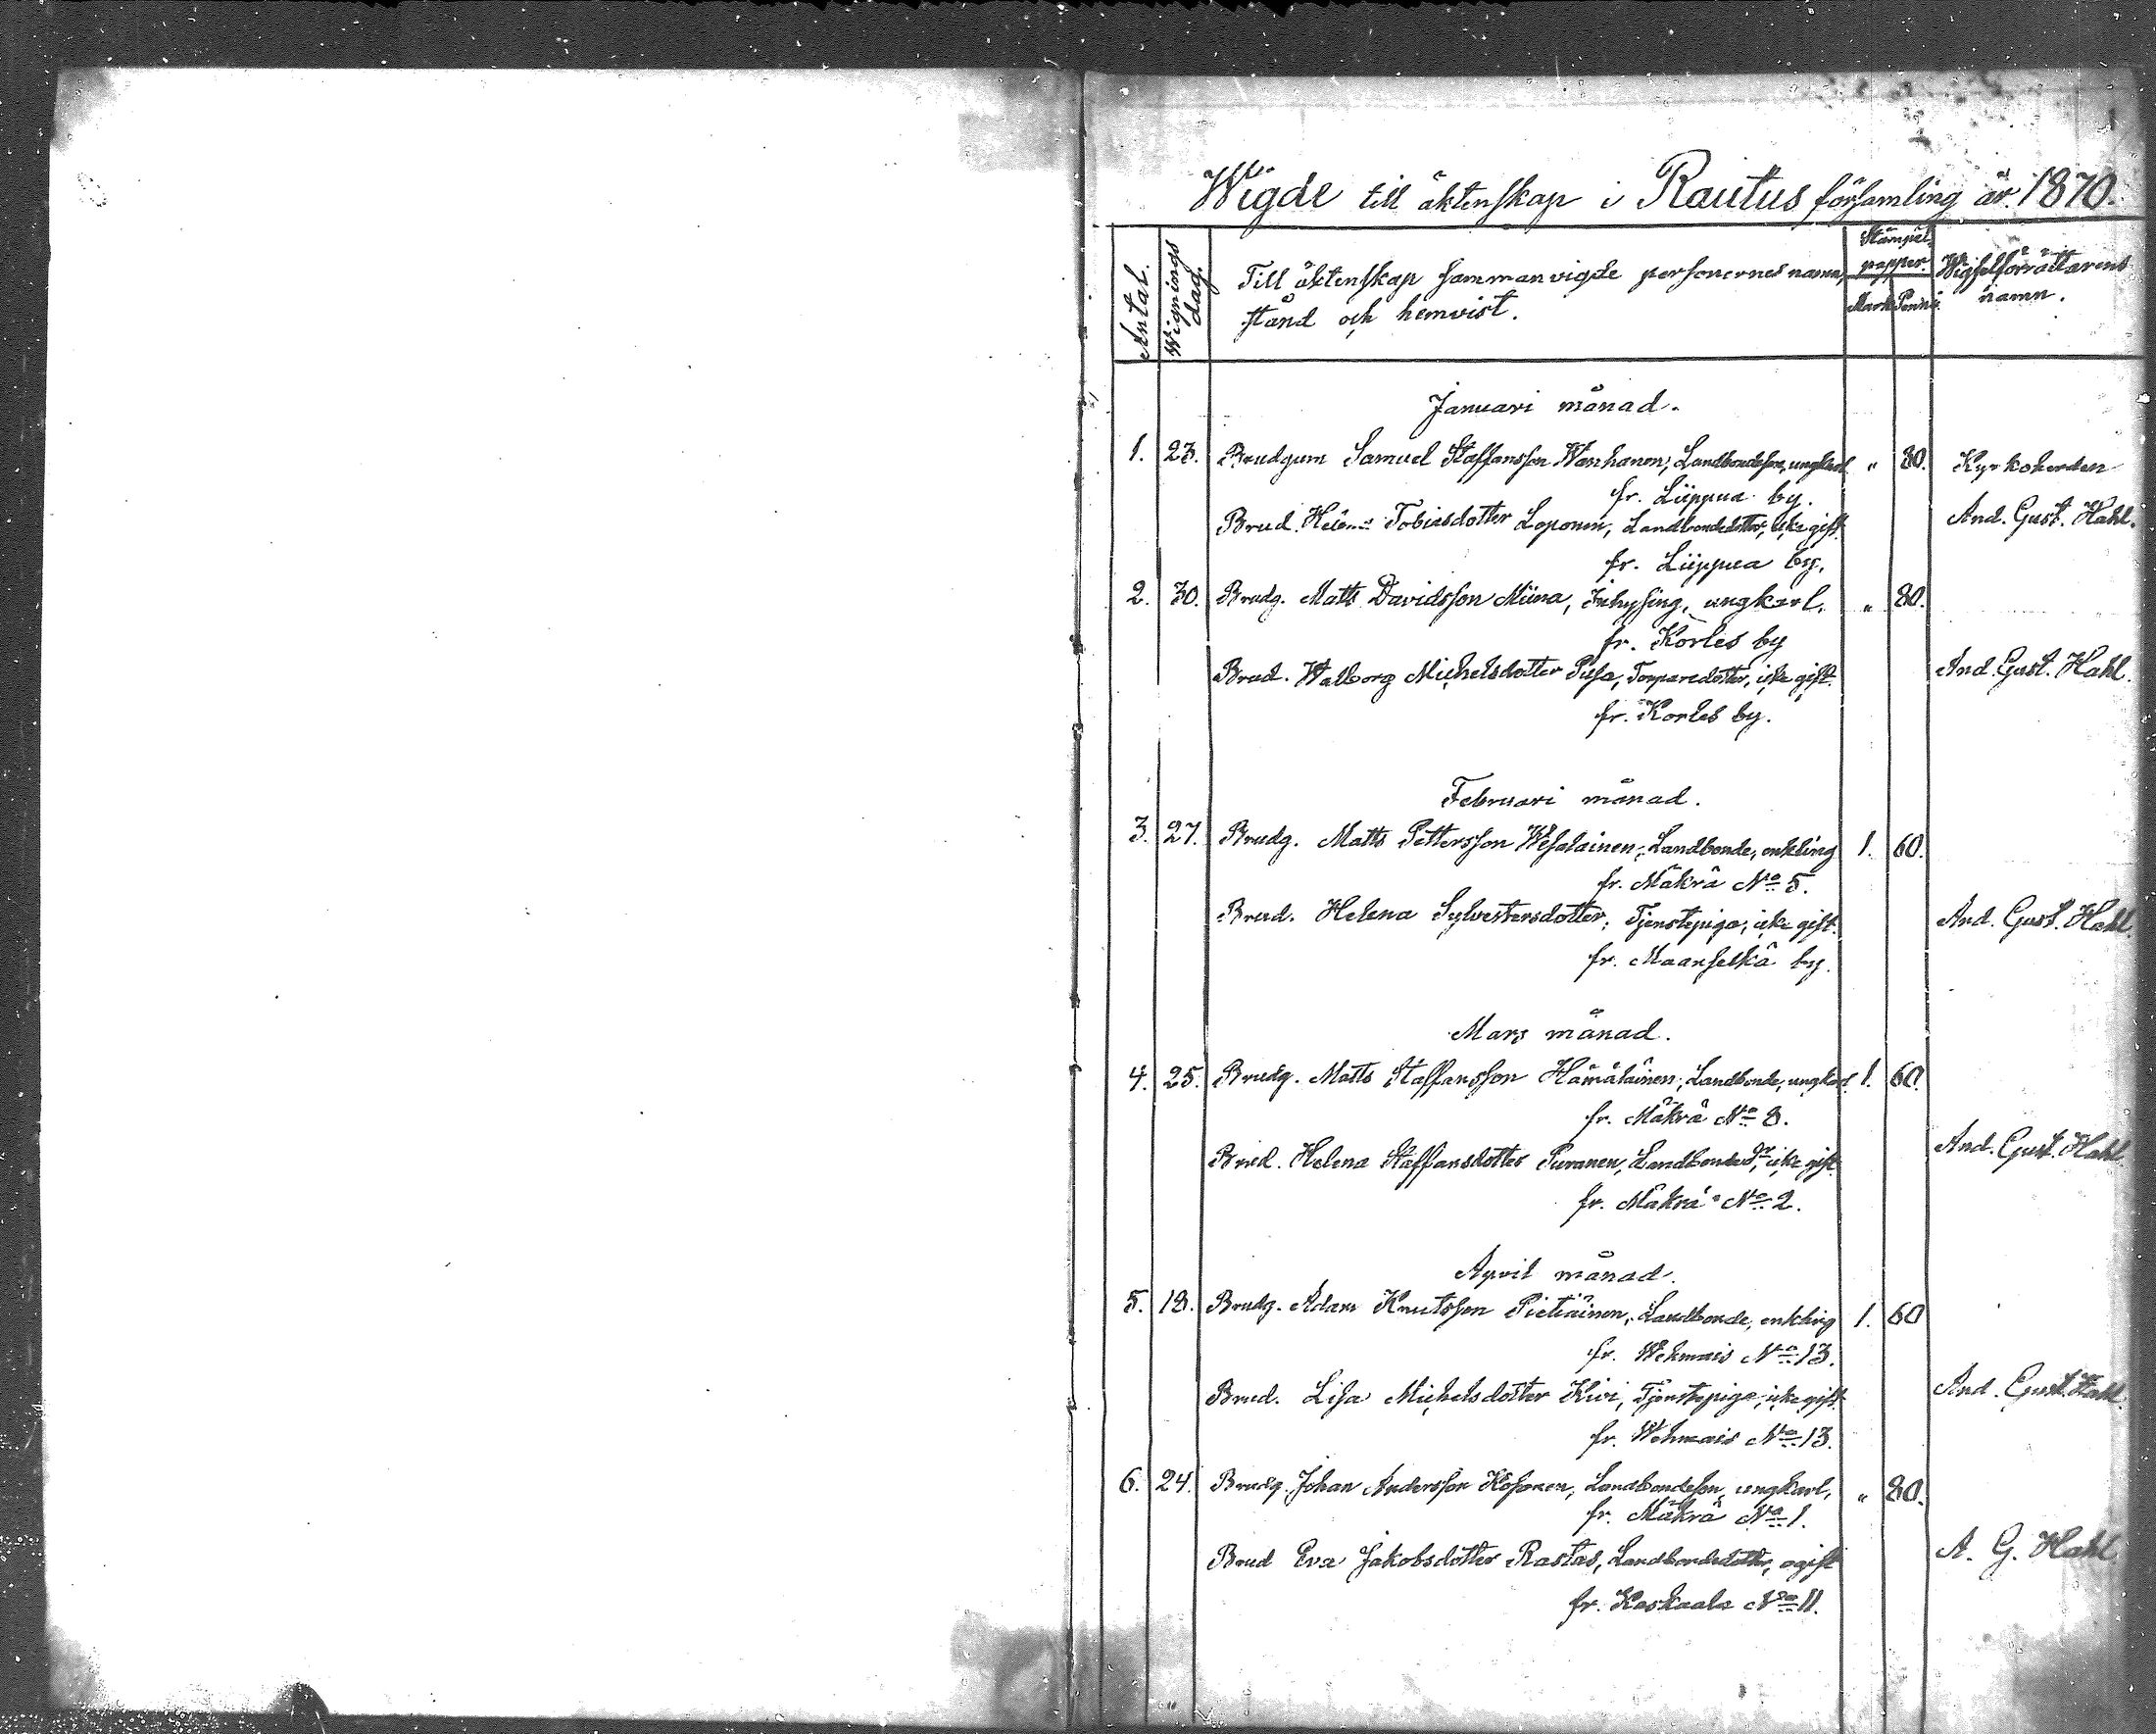 Wigde till äktenskap i Rautus församling år 1870.
Antal.
Wignings dag.
Till äktenskap sammanvigde personernes namn,
stånd och hemvist.
Stämpel papper.
Mark Penni.
Wigselförrättarens
namn.
Januari månad.
1. 23. Brudgum Samuel Staffansson Wanhanen, Landbondeson, ungkarl „ 80. Kyrkoherden
fr. Liippua by.
Brud. Helena Tobiasdotter Loponen, Landbondedotter, icke gift. And. Gust. Hahl.
fr. Liippua by.
2. 30. Brudg. Matts Davidsson Miina, Inhysing, ungkarl. „ 80.
fr. Korles by
Brud. Walborg Michelsdotter Pusa, Torparedotter, icke gift. And. Gust. Hahl.
fr. Korles by.
Februari månad.
3. 27. Brudg. Matts Pettersson Wesalainen, Landbonde, enkling 1. 60.
fr. Mäkrä No 5.
Brud. Helena Sylvestersdotter, Tjenstepiga, icke gift. And. Gust. Hahl.
fr. Maanselkä by.
Mars månad.
4. 25. Brudg. Matts Staffansson Hämäläinen, Landbonde, ungkarl 1. 60.
fr. Mäkrä No 8.
Brud. Helena Staffansdotter Puranen, Landbonded:r, icke gift And. Gust. Hahl
fr. Mäkrä No 2.
April månad.
5. 18. Brudg. Adam Knutsson Pietiäinen, Landbonde, enkling 1. 60
fr. Wehmais No 13.
Brud. Lisa Michelsdotter Kivi, Tjenstepiga, icke gift. And. Gust. Hahl.
fr. Wehmais No 13.
6. 24. Brudg. Johan Andersson Kosonen, Landbondeson, ungkarl, „ 80.
fr. Mäkrä No 1.
Brud Eva Jakobsdotter Rastas, Landbondedotter, ogift A. G. Hahl
fr. Kaskaala No 11.